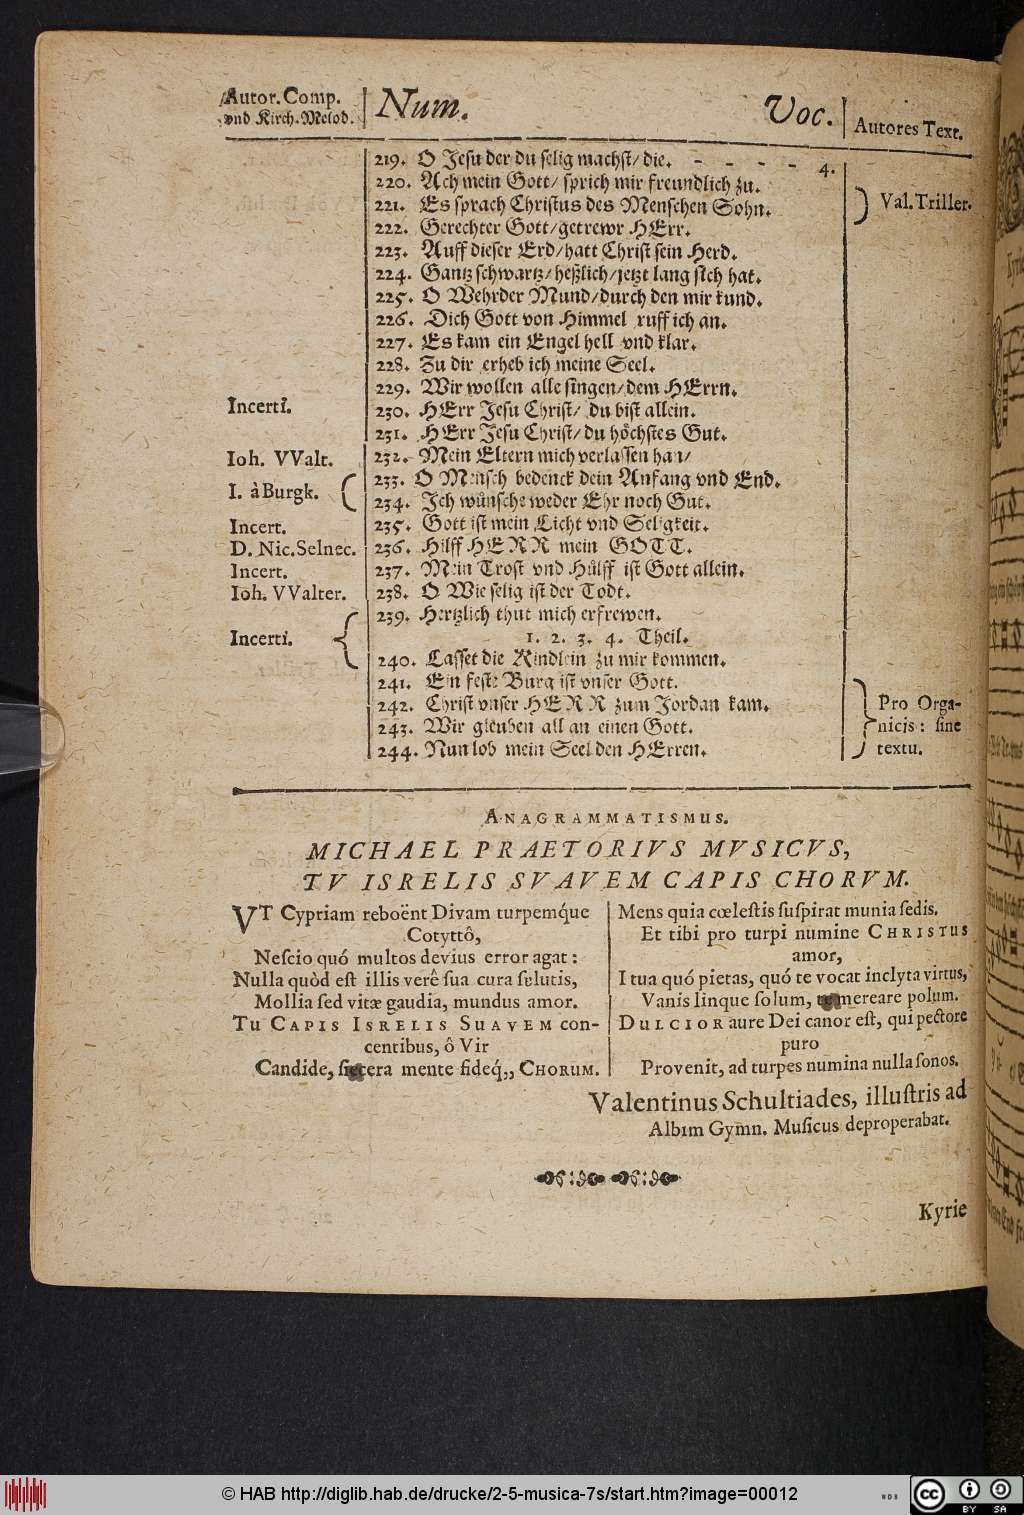 Autor. Comp. Num. Voc. Autores Text.
vnd Kirch. Melod.
219. O Jesu der du selig machst/ die. - - - - 4.
220. Ach mein Gott/ sprich mir freundlich zu.
221. Es sprach Christus des Menschen Sohn. ) Val. Triller.
222. Gerechter Gott/ getrewr HErr.
223. Auff dieser Erd/ hatt Christ sein Herd.
224. Gantz schwartz/ heßlich/ jetzt lang sich hat.
225. O Wehrder Mund/ durch den mir kund.
226. Dich Gott von Himmel ruff ich an.
227. Es kam ein Engel hell vnd klar.
228. Zu dir erheb ich meine Seel.
229. Wir wollen alle singen/ dem HErrn.
Incerti. 230. HErr Jesu Christ/ du bist allein.
231. HErr Jesu Christ/ du höchstes Gut.
Ioh. VValt. 232. Mein Eltern mich verlassen han/
I. à Burgk. ( 233. O Mensch bedenck dein Anfang vnd End.
234. Ich wünsche weder Ehr noch Gut.
Incert. 235. Gott ist mein Licht vnd Seligkeit.
D. Nic. Selnec. 236. Hilff HERR mein GOTT.
Incert. 237. Mein Trost vnd Hülff ist Gott allein.
Ioh. VValter. 238. O Wie selig ist der Todt.
239. Hertzlich thut mich erfrewen.
Incerti. { 1. 2. 3. 4. Theil.
240. Lasset die Kindlein zu mir kommen.
241. Ein feste Burg ist vnser Gott.
242. Christ vnser HERR zum Jordan kam. } Pro Orga-
243. Wir gleuben all an einen Gott. nicis: sine
244. Nun lob mein Seel den HErren. textu.
ANAGRAMMATISMUS.
MICHAEL PRAETORIVS MVSICVS,
TV ISRELIS SVAVEM CAPIS CHORVM.
VT Cypriam reboënt Divam turpemq́ue
Cotyttô,
Nescio quó multos devius error agat:
Nulla quòd est illis verê sua cura selutis,
Mollia sed vitæ gaudia, mundus amor.
TU CAPIS ISRELIS SUAVEM con-
centibus, ô Vir
Candide, sincera mente fideq́,, CHORUM.
Mens quia cœlestis suspirat munia sedis.
Et tibi pro turpi numine CHRISTUS
amor,
I tua quó pietas, quó te vocat inclyta virtus,
Vanis linque solum, mereare polum.
DULCIOR aure Dei canor est, qui pectore
puro
Provenit, ad turpes numina nulla sonos.
Valentinus Schultiades, illustris ad
Albim Gymn. Musicus deproperabat.
Kyrie
© HAB http://diglib.hab.de/drucke/2-5-musica-7s/start.htm?image=00012
WDB
cc BY SA